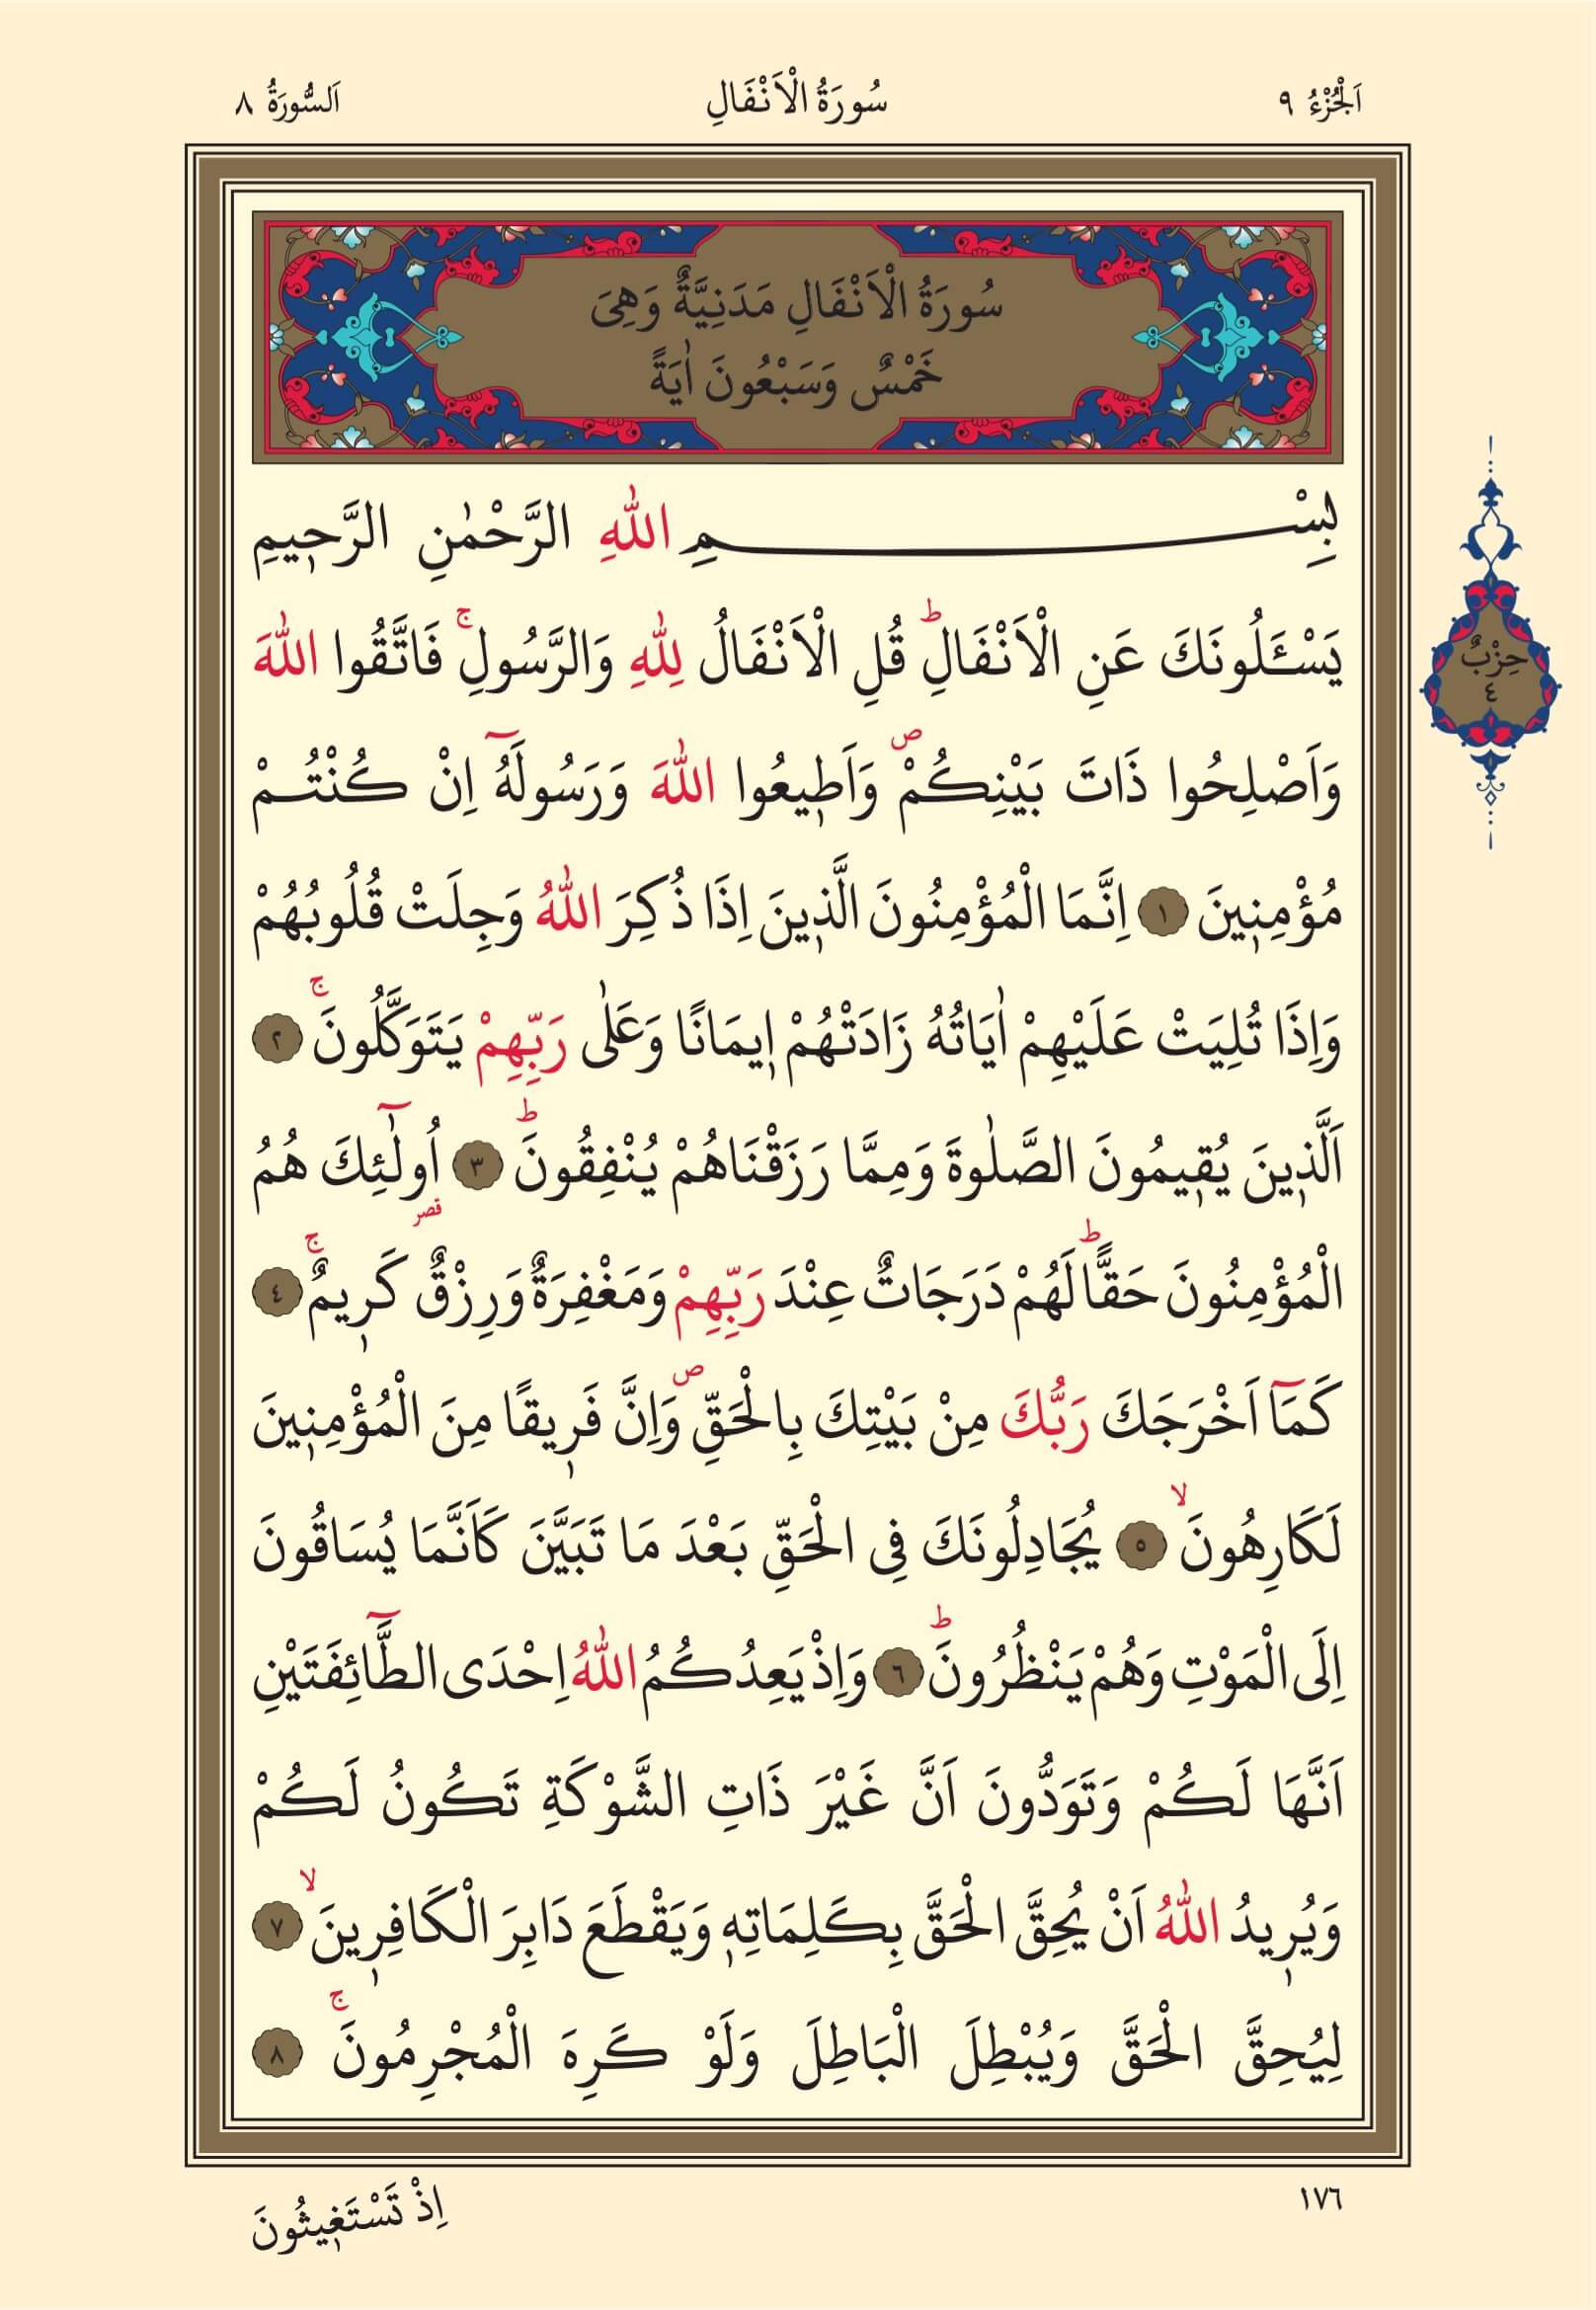 اَلْجُزْءُ ٩
سُورَةُ الْاَنْفَالِ
اَلسُّورَةُ ٨
سُورَةُ الْاَنْفَالِ مَدَنِيَّةٌ وَهِىَ
خَمْسٌ وَسَبْعُونَ اٰيَةً
بِسْــــــمِ اللّٰهِ الرَّحْمٰنِ الرَّح۪يمِ
يَسْـَٔلُونَكَ عَنِ الْاَنْفَالِۜ قُلِ الْاَنْفَالُ لِلّٰهِ وَالرَّسُولِۚ فَاتَّقُوا اللّٰهَ
حِزْبٌ
٤
وَاَصْلِحُوا ذَاتَ بَيْنِكُمْۖ وَاَط۪يعُوا اللّٰهَ وَرَسُولَهُٓ اِنْ كُنْتُمْ
مُؤْمِن۪ينَ ١ اِنَّمَا الْمُؤْمِنُونَ الَّذ۪ينَ اِذَا ذُكِرَ اللّٰهُ وَجِلَتْ قُلُوبُهُمْ
وَاِذَا تُلِيَتْ عَلَيْهِمْ اٰيَاتُهُ زَادَتْهُمْ ا۪يمَانًا وَعَلٰى رَبِّهِمْ يَتَوَكَّلُونَۚ ٢
اَلَّذ۪ينَ يُق۪يمُونَ الصَّلٰوةَ وَمِمَّا رَزَقْنَاهُمْ يُنْفِقُونَۜ ٣ اُو۬لٰٓئِكَ هُمُ
قصر
الْمُؤْمِنُونَ حَقًّاۜ لَهُمْ دَرَجَاتٌ عِنْدَ رَبِّهِمْ وَمَغْفِرَةٌ وَرِزْقٌ كَر۪يمٌۚ ٤
كَمَٓا اَخْرَجَكَ رَبُّكَ مِنْ بَيْتِكَ بِالْحَقِّۖ وَاِنَّ فَر۪يقًا مِنَ الْمُؤْمِن۪ينَ
لَكَارِهُونَۙ ٥ يُجَادِلُونَكَ فِى الْحَقِّ بَعْدَ مَا تَبَيَّنَ كَاَنَّمَا يُسَاقُونَ
اِلَى الْمَوْتِ وَهُمْ يَنْظُرُونَۜ ٦ وَاِذْ يَعِدُكُمُ اللّٰهُ اِحْدَى الطَّٓائِفَتَيْنِ
اَنَّهَا لَكُمْ وَتَوَدُّونَ اَنَّ غَيْرَ ذَاتِ الشَّوْكَةِ تَكُونُ لَكُمْ
وَيُر۪يدُ اللّٰهُ اَنْ يُحِقَّ الْحَقَّ بِكَلِمَاتِه۪ وَيَقْطَعَ دَابِرَ الْكَافِر۪ينَۙ ٧
لِيُحِقَّ الْحَقَّ وَيُبْطِلَ الْبَاطِلَ وَلَوْ كَرِهَ الْمُجْرِمُونَۚ ٨
١٧٦
اِذْ تَسْتَغ۪يثُونَ